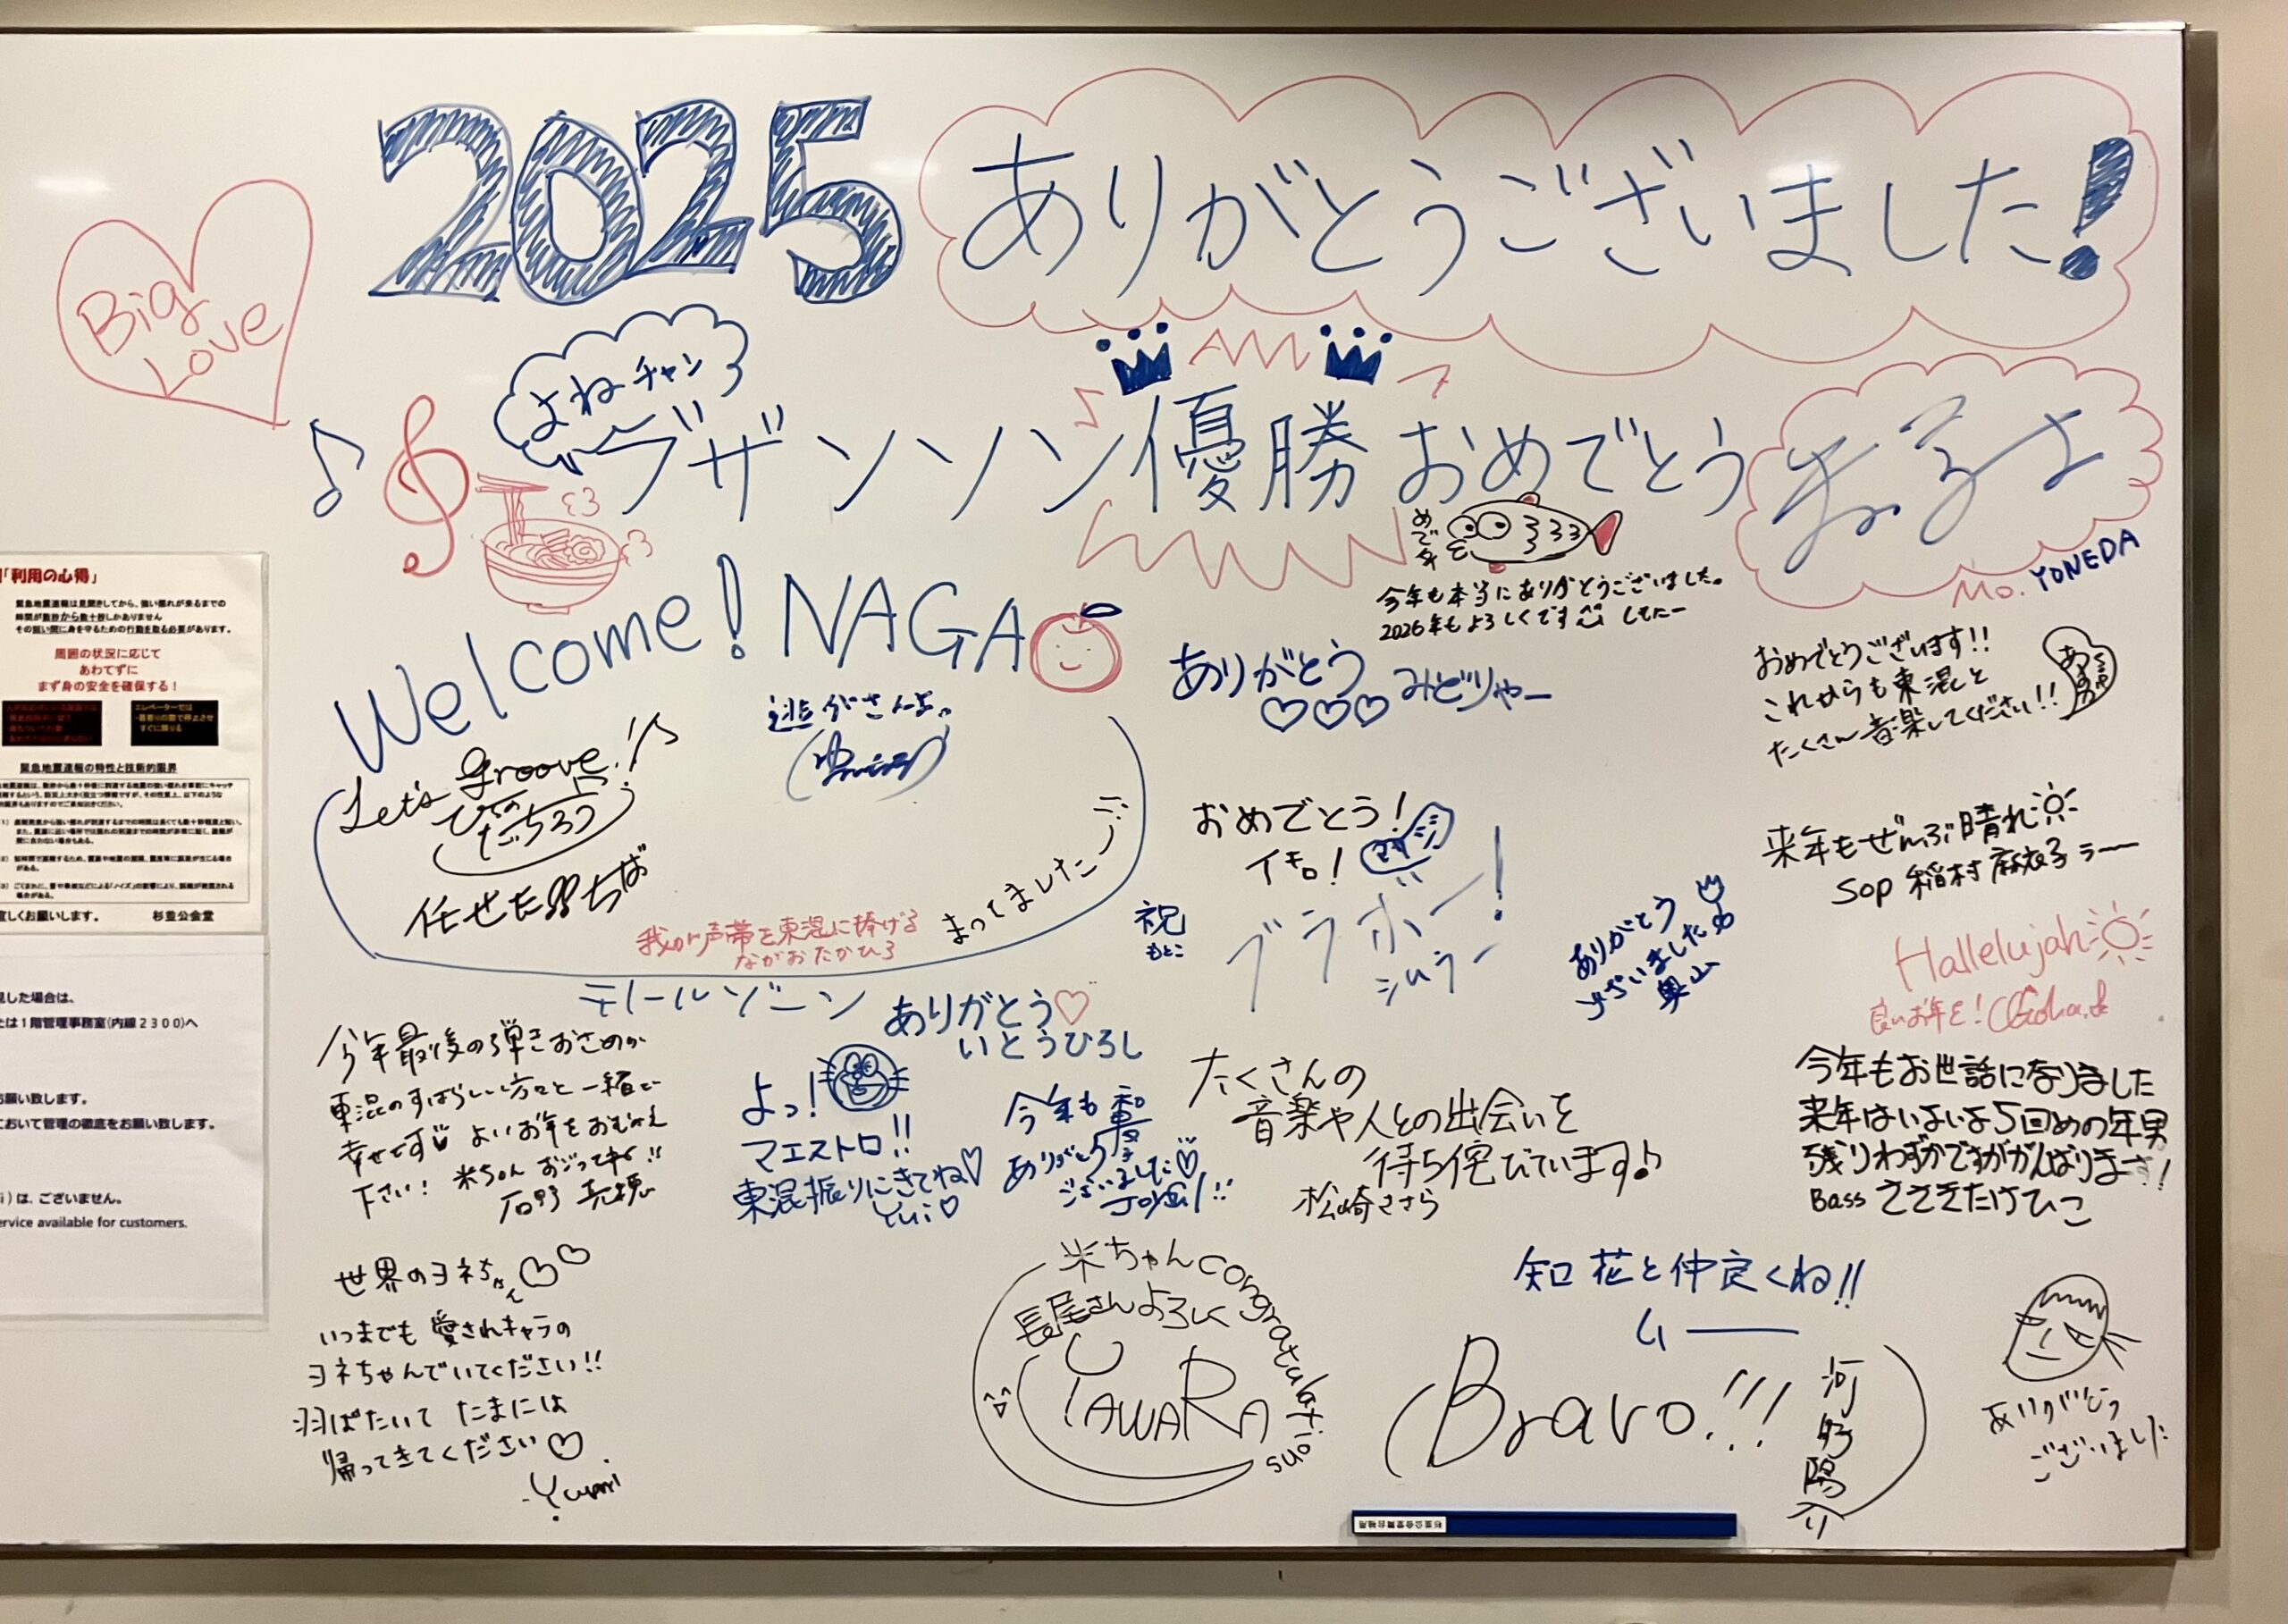 2025 ありがとうございました!
Big
Love
よねチャン
ブザンソン優勝おめでとう
Mo. YONEDA
めです
今年も本当にありがとうございました。
2026年もよろしくです
Welcome! NAGAO
逃がさんよ。
Let's groove!!
任せた
我が声帯を東混に捧げる
ながおたかひろ
まってましたー!!
テノールゾーン
ありがとう
みどりゃー
おめでとうございます!!
これからも東混と
たくさん音楽してください!!
おめでとう!
イキロ!
祝
もとこ
ブラボー!
シムラー
ありがとう
ございました
奥山
来年もぜんぶ晴れ
Sop 稲村麻衣子ラーー
Hallelujah
良いお年を!
今年もお世話になりました
来年はいよいよ5回めの年男
残りわずかですががんばります!
Bass ささきたけひこ
ありがとう♡
いとうひろし
今年最後の弾きおさめが
東混のすばらしい方々と一緒で
幸せです よいお年をおむかえ
下さい! 米ちゃん おごってね!!
よっ!
マエストロ!!
東混振りにきてね♡
Yui♡
今年も
ありがとう
ございました♡
たくさんの
音楽や人との出会いを
待ち侘びています♪
松崎ささら
世界のヨネちゃん♡♡
いつまでも愛されキャラの
ヨネちゃんでいてください!!
羽ばたいて たまには
帰ってきてください♡
Yumi
米ちゃん congratulations
長尾さんよろしく
YAWARA
知花と仲良くね!!
ムー
Bravo!!!
河野陽介
ありがとう
ございました
「利用の心得」
緊急地震速報は見聞きしてから、強い揺れが来るまでの
時間が数秒から数十秒しかありません
その短い間に身を守るための行動を取る必要があります。
周囲の状況に応じて
あわてずに
まず身の安全を確保する!
緊急地震速報の特性と技術的限界
宜しくお願いします。 杉並公会堂
見した場合は、
たは1階管理事務室(内線2300)へ
お願い致します。
において管理の徹底をお願い致します。
i)は、ございません。
ervice available for customers.